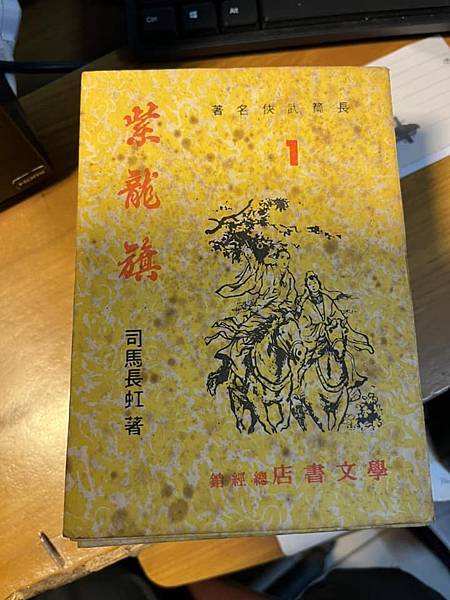 Ctrl
Alt
長篇武俠名著
1
紫龍旗
司馬長虹著
學文書店總經銷